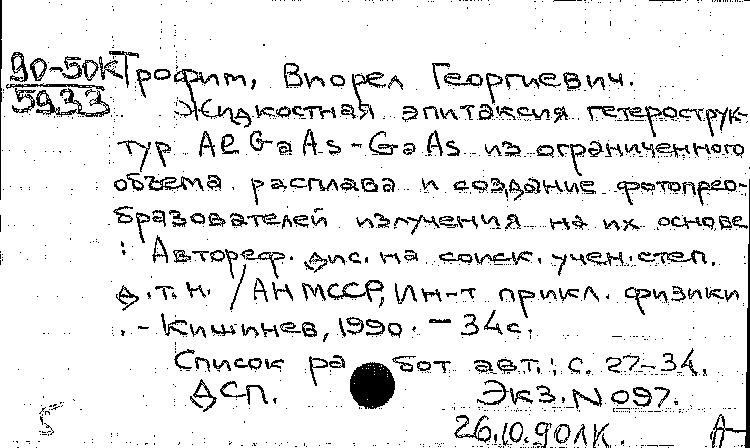 90-50К Трофим, Виорел Георгиевич.
5933 Жидкостная эпитаксия гетерострук-
тур AlGaAs-GaAs из ограниченного
объема расплава и создание фотопрео-
бразователей излучения на их основе
: Автореф. дис. на соиск. учен. степ.
д.т.н. /АН МССР, Ин-т прикл. физики
.- Кишинев, 1990. - 34с.
Список работ авт.: с. 27-34.
ДСП. Экз. N 097.
5 26.10.90ЛК. А-